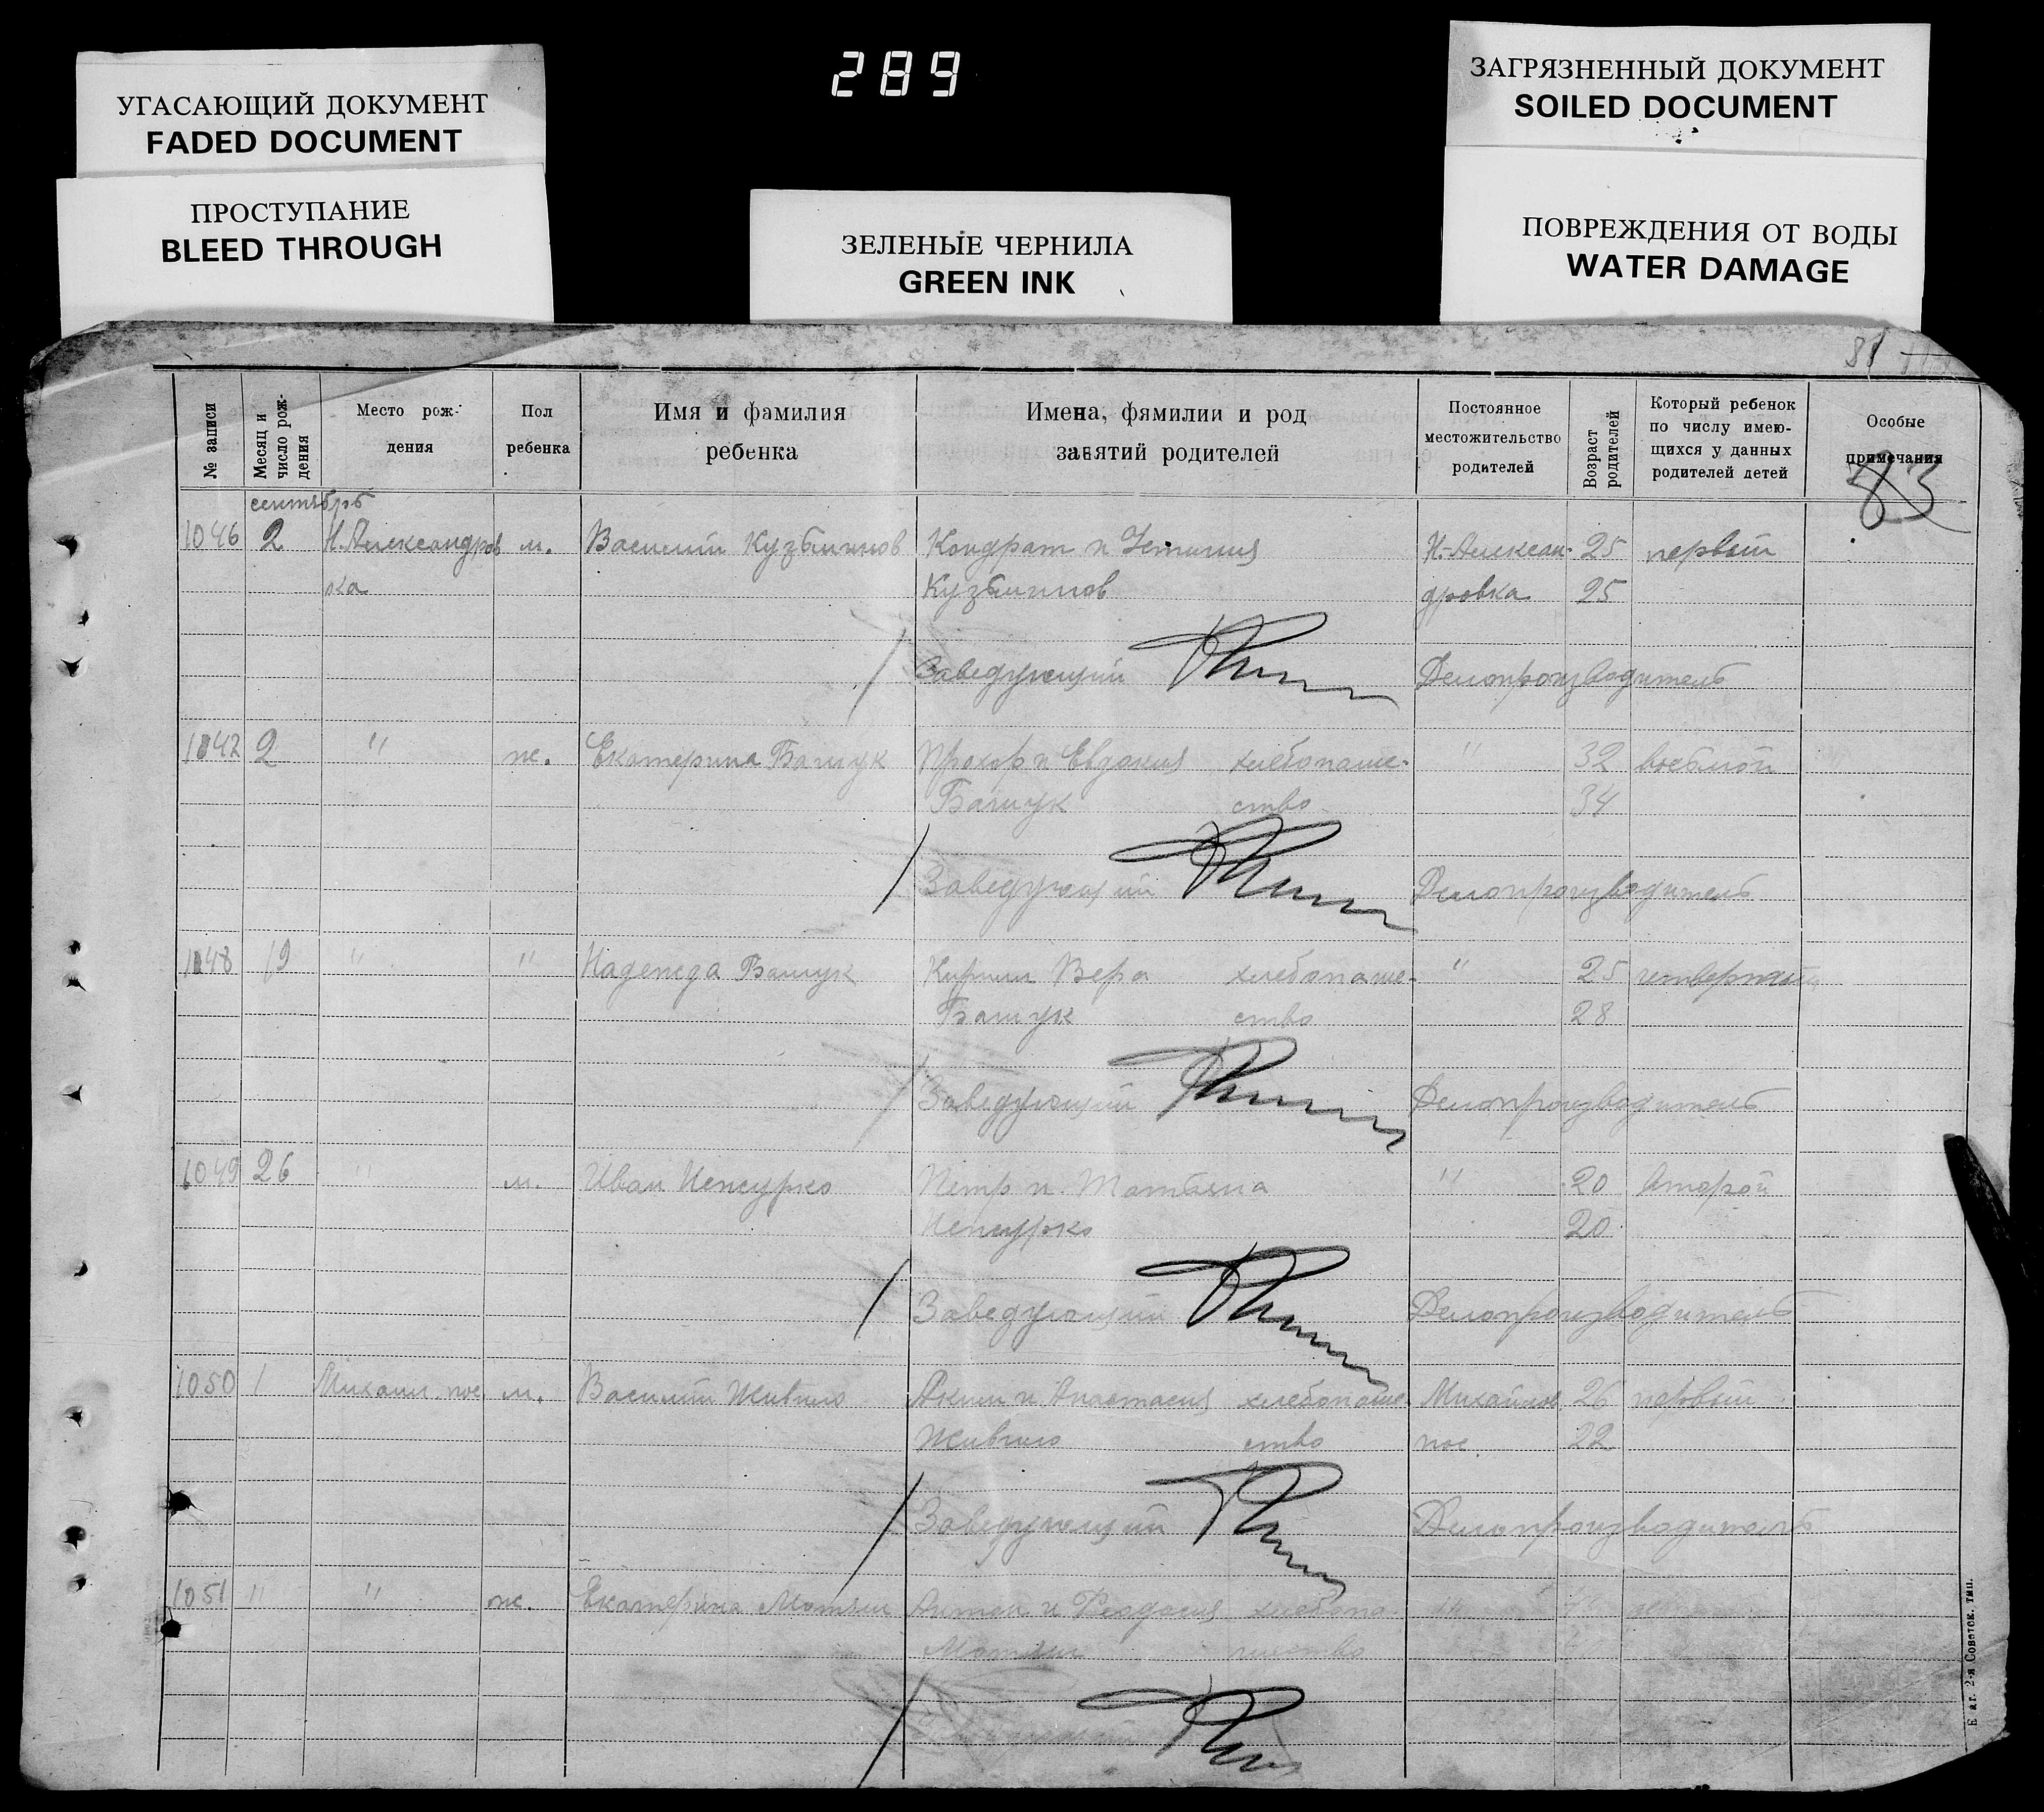 289
УГАСАЮЩИЙ ДОКУМЕНТ
FADED DOCUMENT
ПРОСТУПАНИЕ
BLEED THROUGH
ЗЕЛЕНЫЕ ЧЕРНИЛА
GREEN INK
ЗАГРЯЗНЕННЫЙ ДОКУМЕНТ
SOILED DOCUMENT
ПОВРЕЖДЕНИЯ ОТ ВОДЫ
WATER DAMAGE
81
№ записи
Месяц и число рождения
Место рож-
дения
Пол
ребенка
Имя и фамилия
ребенка
Имена, фамилии и род
занятий родителей
Постоянное
местожительство
родителей
Возраст родителей
Который ребенок
по числу имею-
щихся у данных
родителей детей
Особые
примечания
83
сентябрь
1046 2 Н.Александров м. Василий Кузьминов Кондрат и Устиния Н.-Алексан- 25 первый
ка Кузьминов дровка 25
Заведующий Делопроизводитель
1047 2 " ж. Екатерина Башук Прохор и Евдокия хлебопаше- " 32 восьмой
Башук ство 34
Заведующий Делопроизводитель
1048 19 " " Надежда Башук Кирилл Вера хлебопаше- " 25 четвертый
Башук ство 28
Заведующий Делопроизводитель
1049 26 " м. Иван Петр и Татьяна " 20 второй
20
Заведующий Делопроизводитель
1050 1 Михаил. пос. м. Василий Живило Аким и Анастасия хлебопаше- Михайлов 26 первый
Живило ство пос. 22
Заведующий Делопроизводитель
1051 " " ж. Екатерина Антон и Феодосия хлебопа-
шество
2-я Советск. тип.